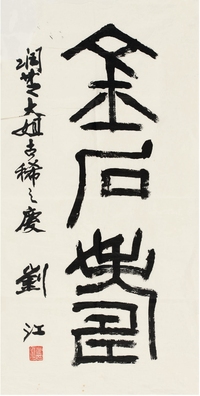 金石壽
润芝大姐古稀之慶
劉江